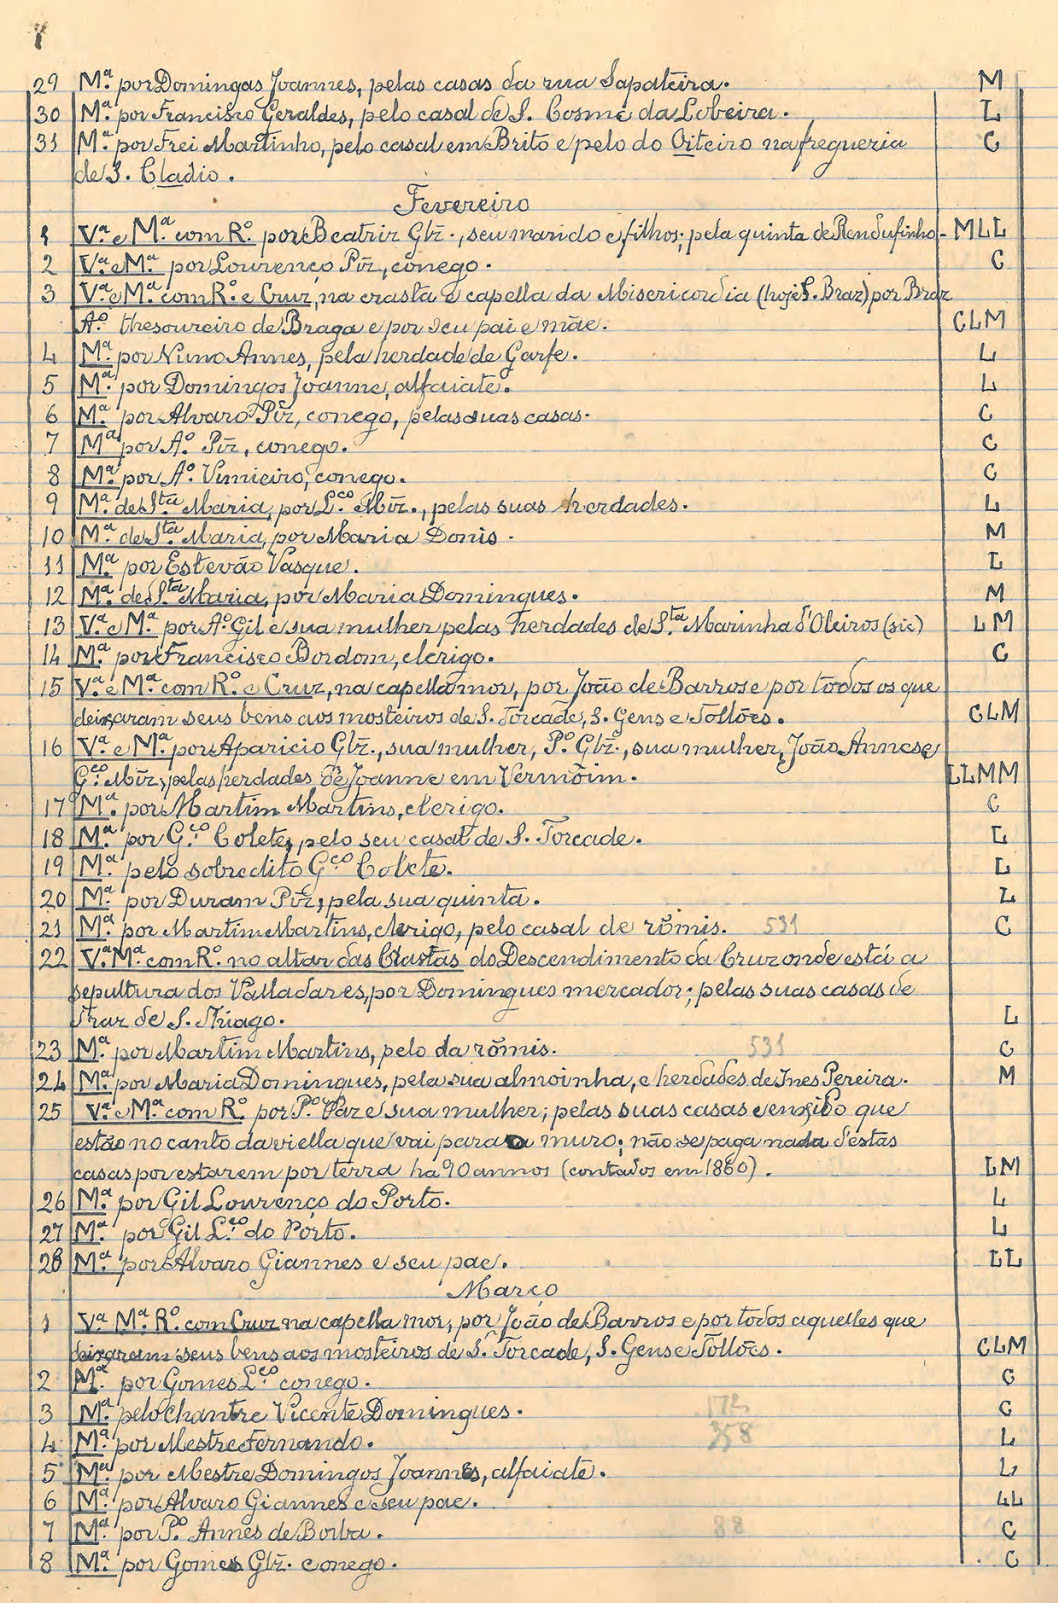 29 Mª. por Domingas Joannes, pelas casas da rua Sapateira. M
30 Mª. por Francisco Geraldes, pelo casal de S. Cosme da Lobeira. L
31 Mª. por Frei Martinho, pelo casal em Brito e pelo do Oiteiro na fregueria C
de S. Cladio.
Fevereiro
1 Vª. e Mª. com Rº. por Beatriz Glz̃., seu marido e filhos; pela quinta de Rendufinho - MLL
2 Vª. e Mª. por Lourenço Piz̃, conego. C
3 Vª. e Mª. com Rº. e Cruz, na crasta e capella da Misericordia (hoje S. Braz) por Braz
Aº. thesoureiro de Braga e por seu pai e mãe. CLM
4 Mª. por Nuno Annes, pela herdade de Garfe. L
5 Mª. por Domingos Joanne, alfaiate. L
6 Mª. por Alvaro Piz̃, conego, pelas suas casas. C
7 Mª. por Aº. Piz̃, conego. C
8 Mª. por Aº. Vimieiro, conego. C
9 Mª. de Sta. Maria, por L.co Miz̃., pelas suas herdades. L
10 Mª. de Sta. Maria, por Maria Donis. M
11 Mª. por Estevão Vasque. L
12 Mª. de Sta. Maria, por Maria Domingues. M
13 Vª. e Mª. por Aº. Gil e sua mulher pelas herdades de Sta. Marinha d'Oleiros (sic) LM
14 Mª. por Francisco Bordom, clerigo. C
15 Vª. e Mª. com Rº. e Cruz, na capella mor, por João de Barros e por todos os que
deixaram seus bens aos mosteiros de S. Torcade, S. Gens e Tollões. CLM
16 Vª. e Mª. por Aparicio Glz̃., sua mulher, Pº. Glz̃., sua mulher, João Annes e
G.co Miz̃; pelas herdades de Joanne em Vermõim. LLMM
17 Mª. por Martim Martins, clerigo. C
18 Mª. por G.co Colete, pelo seu casal de S. Torcade. L
19 Mª. pelo sobredito G.co Colete. L
20 Mª. por Duram Piz̃, pela sua quinta. L
21 Mª. por Martim Martins, clerigo, pelo casal de rõmis. 531 C
22 Vª. Mª. com Rº. no altar das Clastas do Descendimento da Cruz onde está a
sepultura dos Valladares, por Domingues mercador; pelas suas casas de
traz de S. Thiago. L
23 Mª. por Martim Martins, pelo da rõmis. 531 C
24 Mª. por Maria Domingues, pela sua almoinha, e herdades de Ines Pereira. M
25 Vª. e Mª. com Rº. por Pº. Vaz e sua mulher; pelas suas casas e enxido que
estão no canto da viella que vai para o muro; não se paga nada d'estas
casas por estarem por terra ha 90 annos (contados em 1860). LM
26 Mª. por Gil Lourenço do Porto. L
27 Mª. por Gil L.co do Porto. L
28 Mª. por Alvaro Giannes e seu pae. LL
Março
1 Vª. Mª. Rº. com Cruz na capella mor, por João de Barros e por todos aquelles que
deixaram seus bens aos mosteiros de S. Torcade, S. Gens e Tollões. CLM
2 Mª. por Gomes L.co conego. C
3 Mª. pelo Chantre Vicente Domingues. 172 C
4 Mª. por Mestre Fernando. 358 L
5 Mª. por Mestre Domingos Joannes, alfaiate. L
6 Mª. por Alvaro Giannes e seu pae. LL
7 Mª. por Pº. Annes de Borba. 88 C
8 Mª. por Gomes Glz̃. conego. C